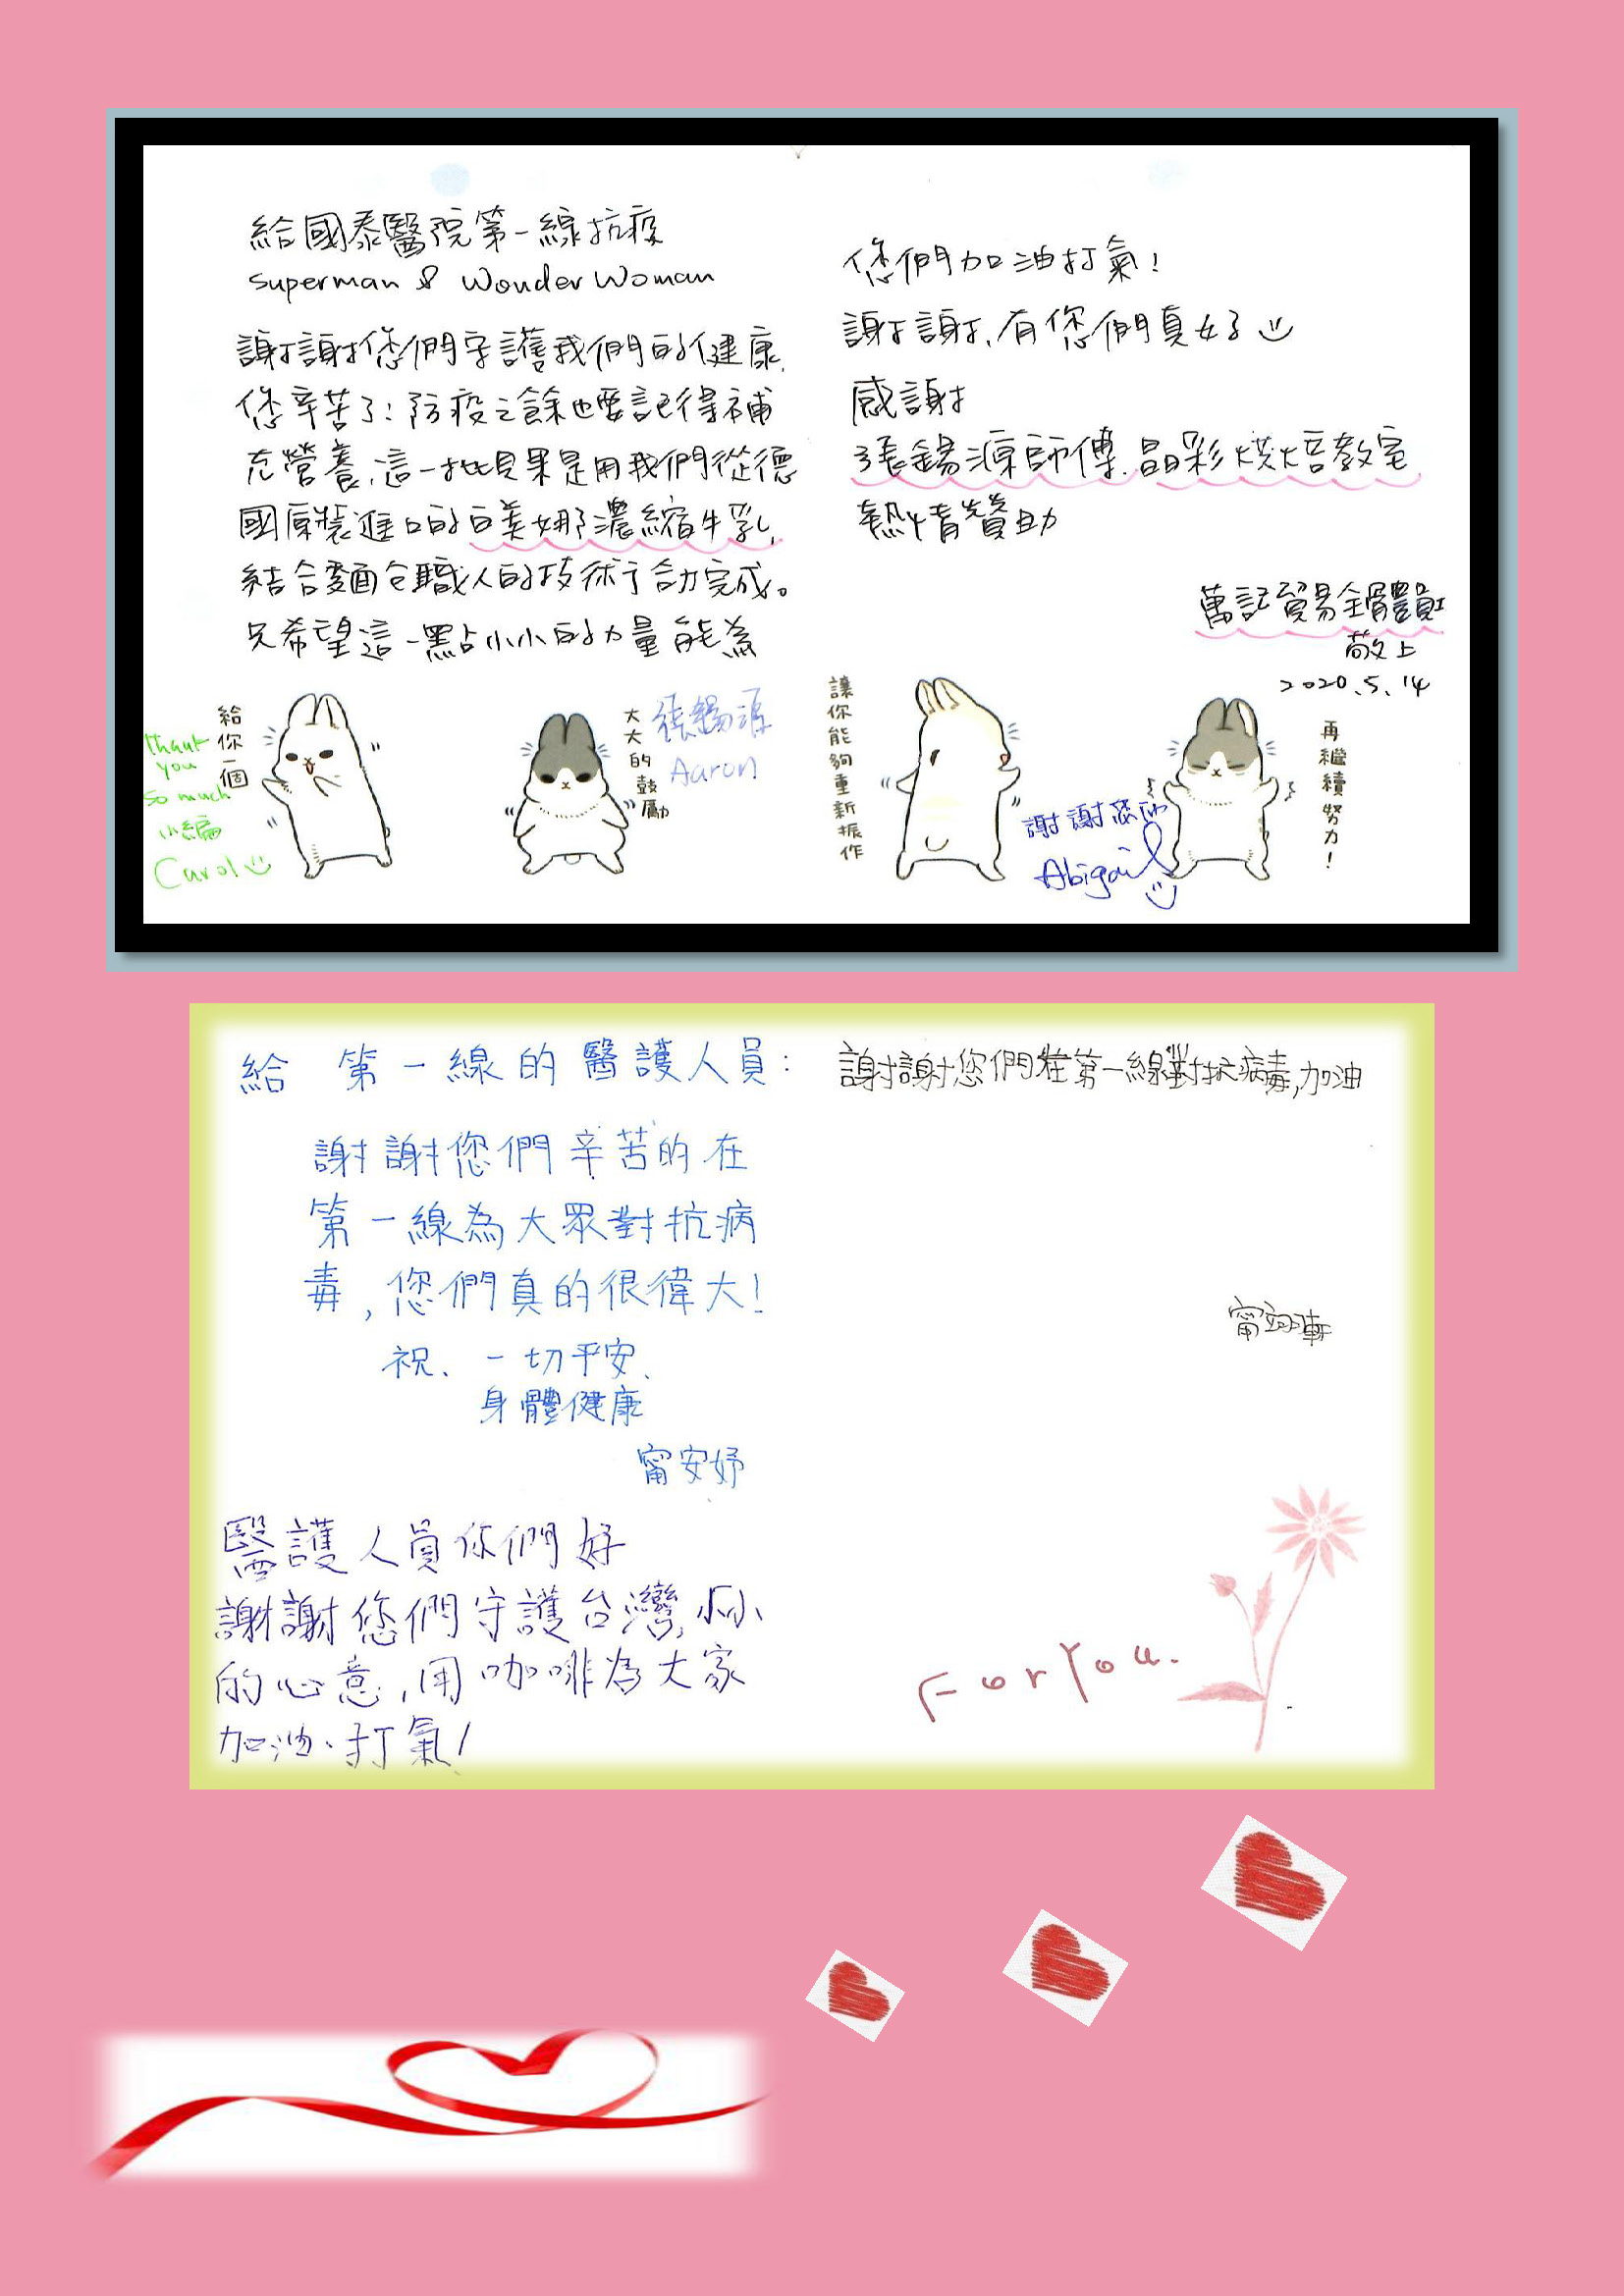 給國泰醫院第一線抗疫
Superman & Wonder Woman
謝謝您們守護我們的健康,
您辛苦了!防疫之餘也要記得補
充營養,這一批貝果是用我們從德
國原裝進口的白美娜濃縮牛乳,
結合麵包職人的技術合力完成。
只希望這一點小小的力量能為
您們加油打氣!
謝謝,有您們真好
感謝
張錫源師傅、晶彩烘焙教室
熱情贊助
萬記貿易全體員工
敬上
2020.5.14
給你一個
thank
you
so much
小編
Carol
大大的鼓勵
張錫源
Aaron
讓你能夠重新振作
謝謝您們
Abigail
再繼續努力!
給 第一線的醫護人員:
謝謝您們辛苦的在
第一線為大眾對抗病
毒,您們真的很偉大!
祝、一切平安、
身體健康
甯安妤
醫護人員你們好
謝謝您們守護台灣,小小
的心意,用咖啡為大家
加油、打氣!
謝謝您們在第一線對抗病毒,加油
For You.